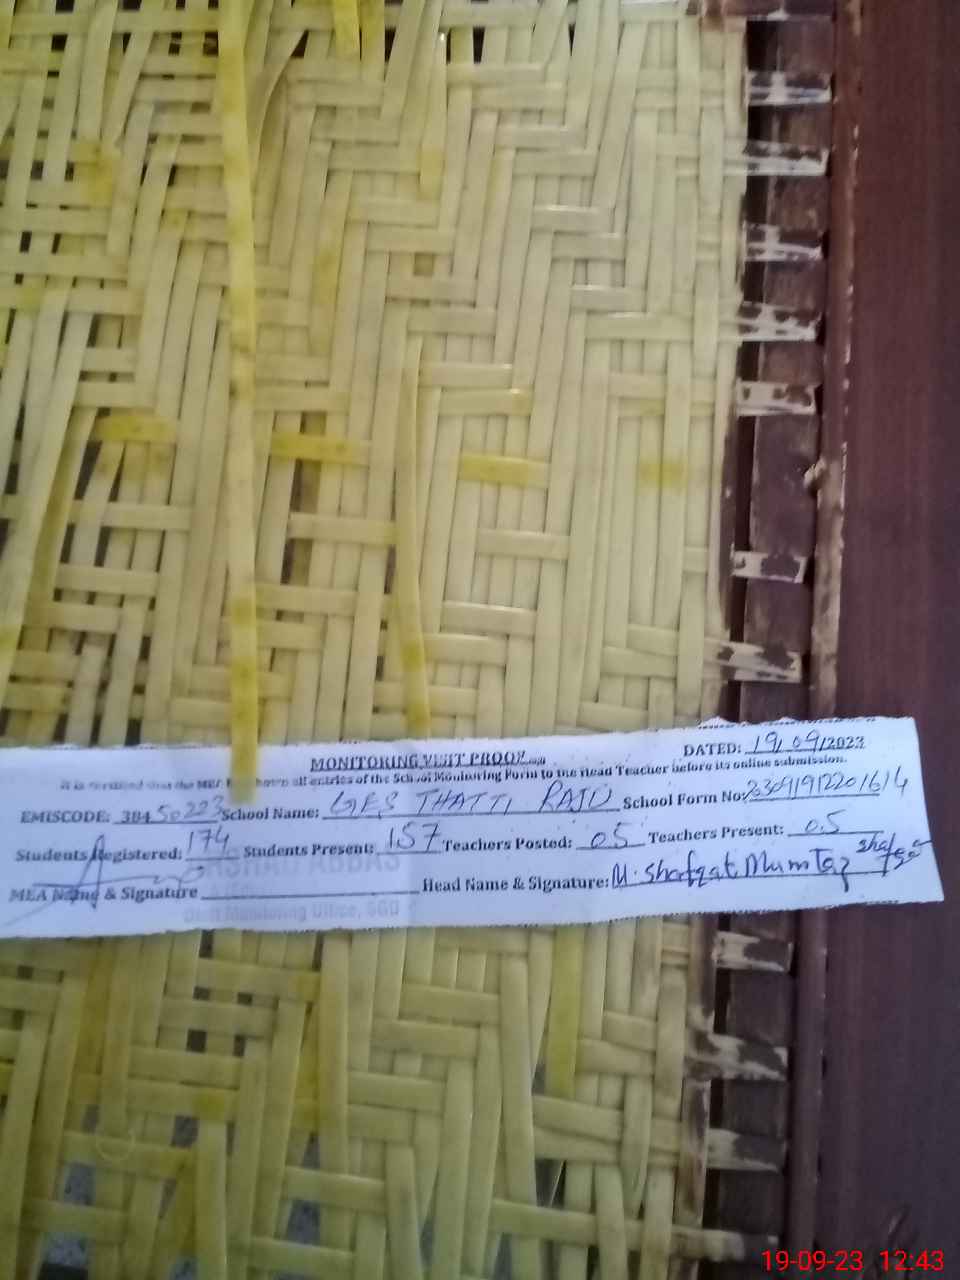 MONITORING VISIT PROOF
DATED: 19/09/2023
It is certified that the MEA shown all entries of the School Monitoring Form to the Head Teacher before its online submission.
EMISCODE: 38450223 School Name: GES THATTI RAJU School Form No:
Students Registered: 174 Students Present: 157 Teachers Posted: 05 Teachers Present: 05
MEA Name & Signature Head Name & Signature: M. Shafqat Mumtaz
ABBAS
Monitoring Office, SGD
19-09-23 12:43